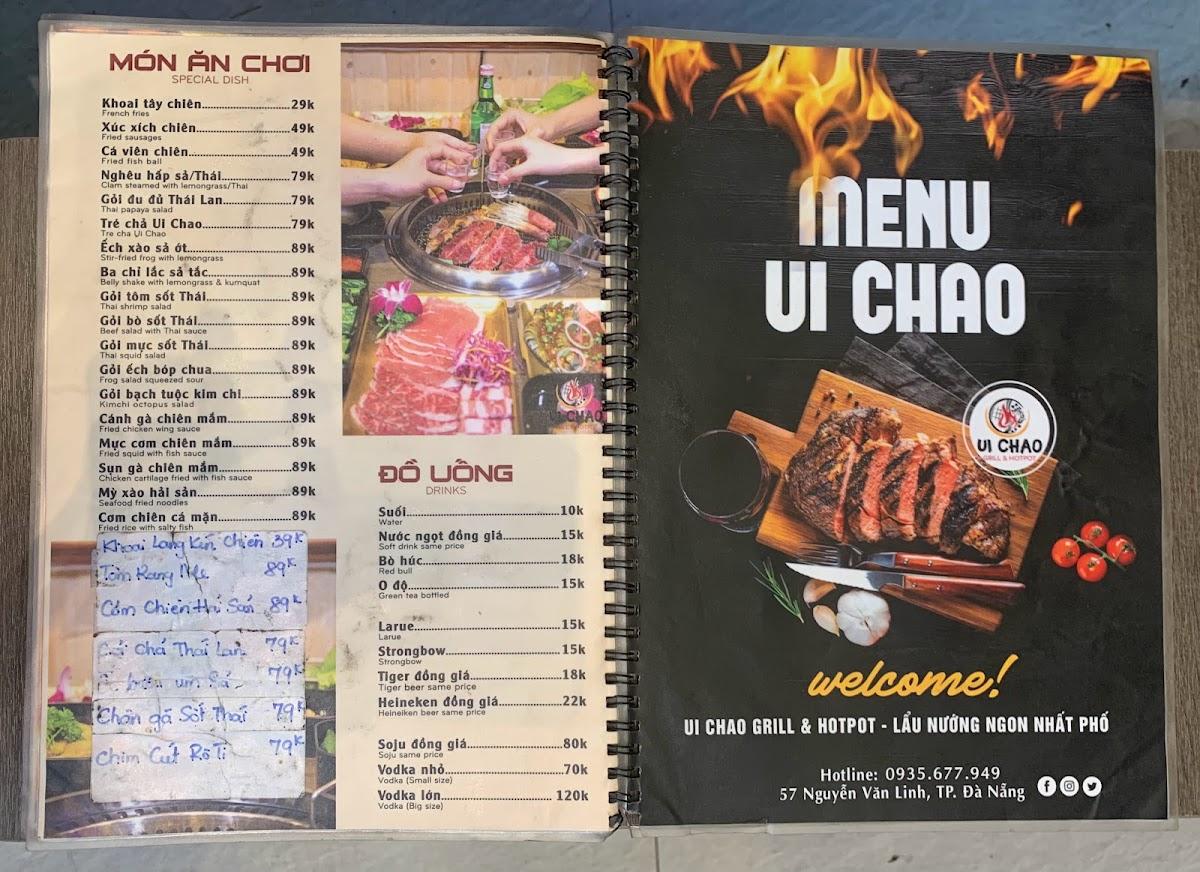 MÓN ĂN CHƠI
SPECIAL DISH
Khoai tây chiên..........................29k
French fries
Xúc xích chiên..........................49k
Fried sausages
Cá viên chiên..........................49k
Fried fish ball
Nghêu hấp sả/Thái..........................79k
Clam steamed with lemongrass/Thai
Gỏi đu đủ Thái Lan..........................79k
Thai papaya salad
Tré chả Ui Chao..........................79k
Tre cha Ui Chao
Ếch xào sả ớt..........................89k
Stir-fried frog with lemongrass
Ba chỉ lắc sả tắc..........................89k
Belly shake with lemongrass & kumquat
Gỏi tôm sốt Thái..........................89k
Thai shrimp salad
Gỏi bò sốt Thái..........................89k
Beef salad with Thai sauce
Gỏi mực sốt Thái..........................89k
Thai squid salad
Gỏi ếch bóp chua..........................89k
Frog salad squeezed sour
Gỏi bạch tuộc kim chi..........................89k
Kimchi octopus salad
Cánh gà chiên mắm..........................89k
Fried chicken wing sauce
Mực cơm chiên mắm..........................89k
Fried squid with fish sauce
Sụn gà chiên mắm..........................89k
Chicken cartilage fried with fish sauce
Mỳ xào hải sản..........................89k
Seafood fried noodles
Cơm chiên cá mặn..........................89k
Fried rice with salty fish
Khoai Lang Kén Chiên 39K
Tôm Rang Me 89K
Cơm Chiên Hải Sản 89K
Chả Thái Lan 79K
79K
Chân gà Sốt Thái 79K
Chim Cút Rô Ti 79K
UI CHAO
ĐỒ UỐNG
DRINKS
Suối..........................10k
Water
Nước ngọt đồng giá..........................15k
Soft drink same price
Bò húc..........................18k
Red bull
O độ..........................15k
Green tea bottled
Larue..........................15k
Larue
Strongbow..........................15k
Strongbow
Tiger đồng giá..........................18k
Tiger beer same price
Heineken đồng giá..........................22k
Heineiken beer same price
Soju đồng giá..........................80k
Soju same price
Vodka nhỏ..........................70k
Vodka (Small size)
Vodka lớn..........................120k
Vodka (Big size)
MENU
UI CHAO
UI CHAO
GRILL & HOTPOT
welcome!
UI CHAO GRILL & HOTPOT - LẨU NƯỚNG NGON NHẤT PHỐ
Hotline: 0935.677.949
57 Nguyễn Văn Linh, TP. Đà Nẵng